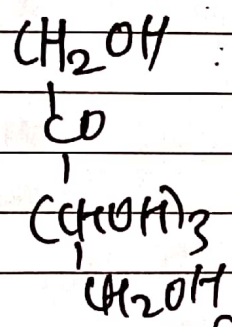 CH2OH
CO
(CHOH)3
CH2OH